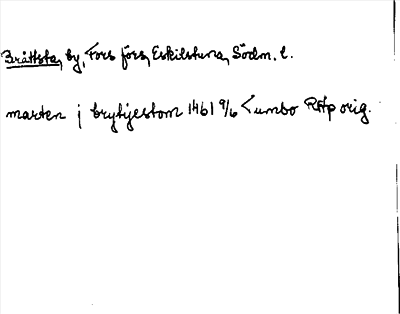 Bråttsta, by, Fors förs, Eskilstuna, Södm. l.
marten j brytjestom 1461 9/6 Lumbo RAp orig.